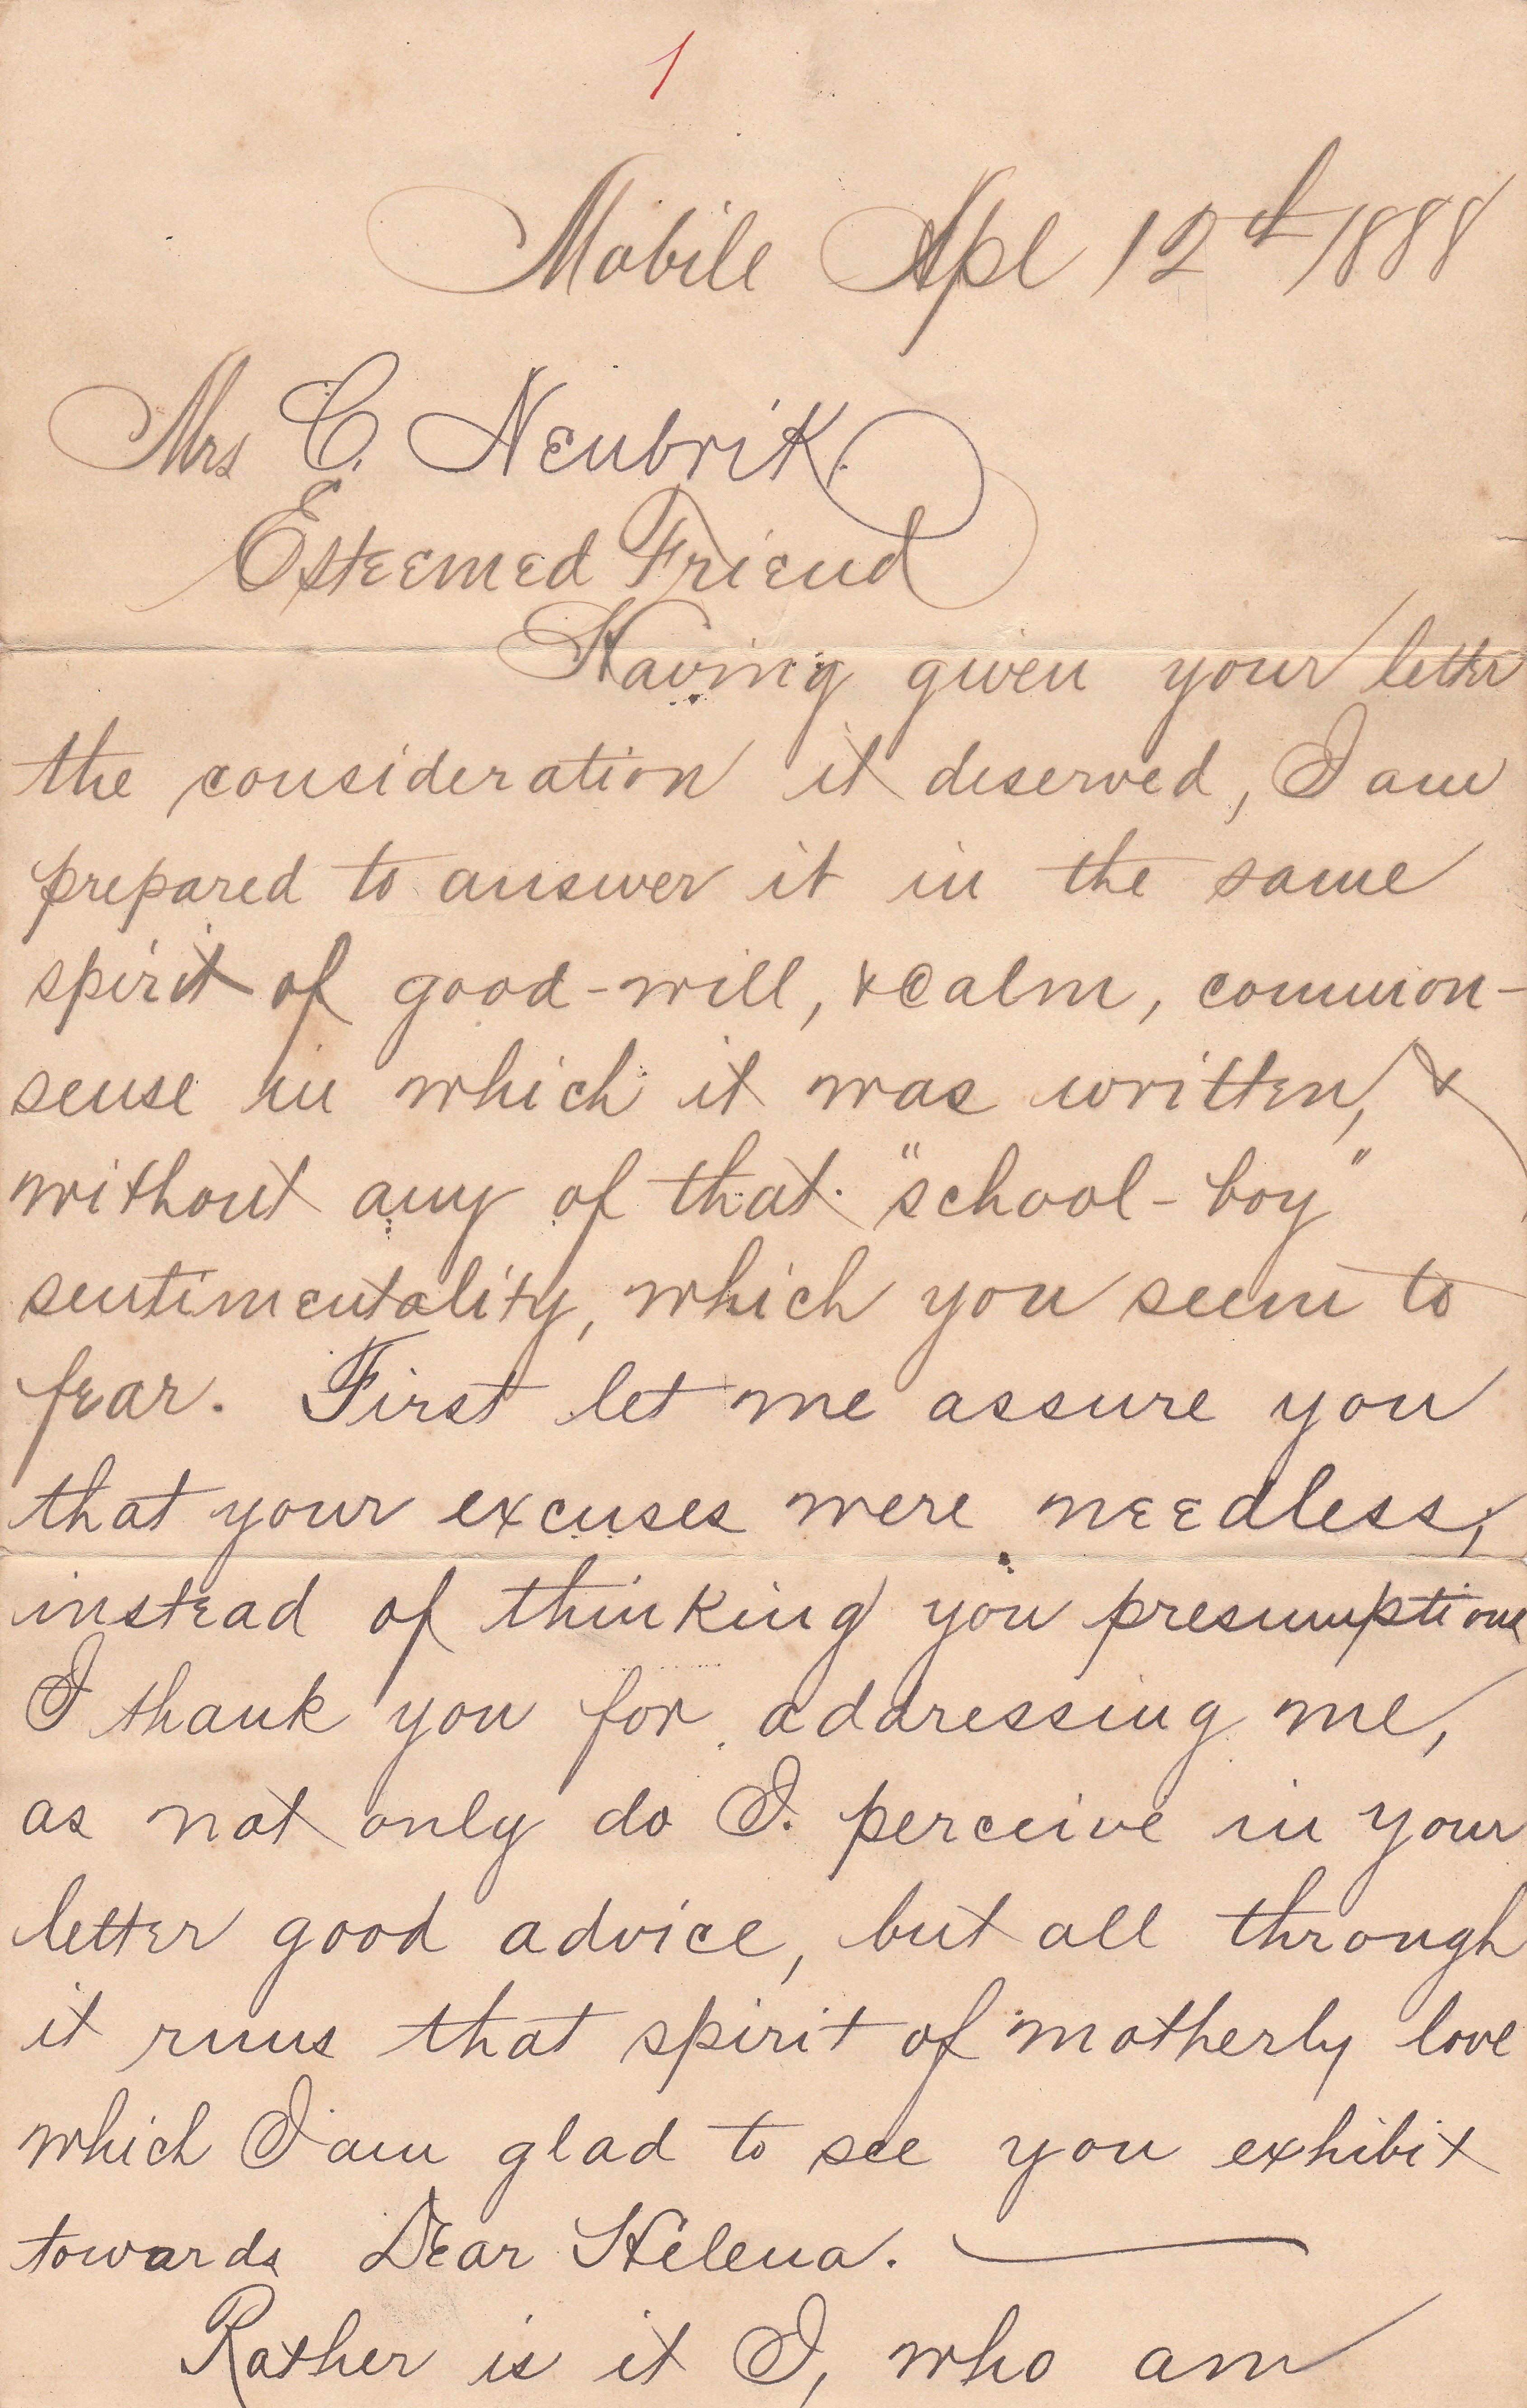 1
Mobile Apl 12th 1888
Mrs C. Neubrik.
Esteemed Friend
Having given your letter
the consideration it deserved, I am
prepared to answer it in the same
spirit of good-will, & calm, common-
sense in which it was written, &
without any of that "school-boy"
sentimentality, which you seem to
fear. First let me assure you
that your excuses were needless,
instead of thinking you presumptious
I thank you for addressing me,
as not only do I. perceive in your
letter good advice, but all through
it runs that spirit of motherly love
which I am glad to see you exhibit
towards Dear Helena. —
Rather is it I, who am